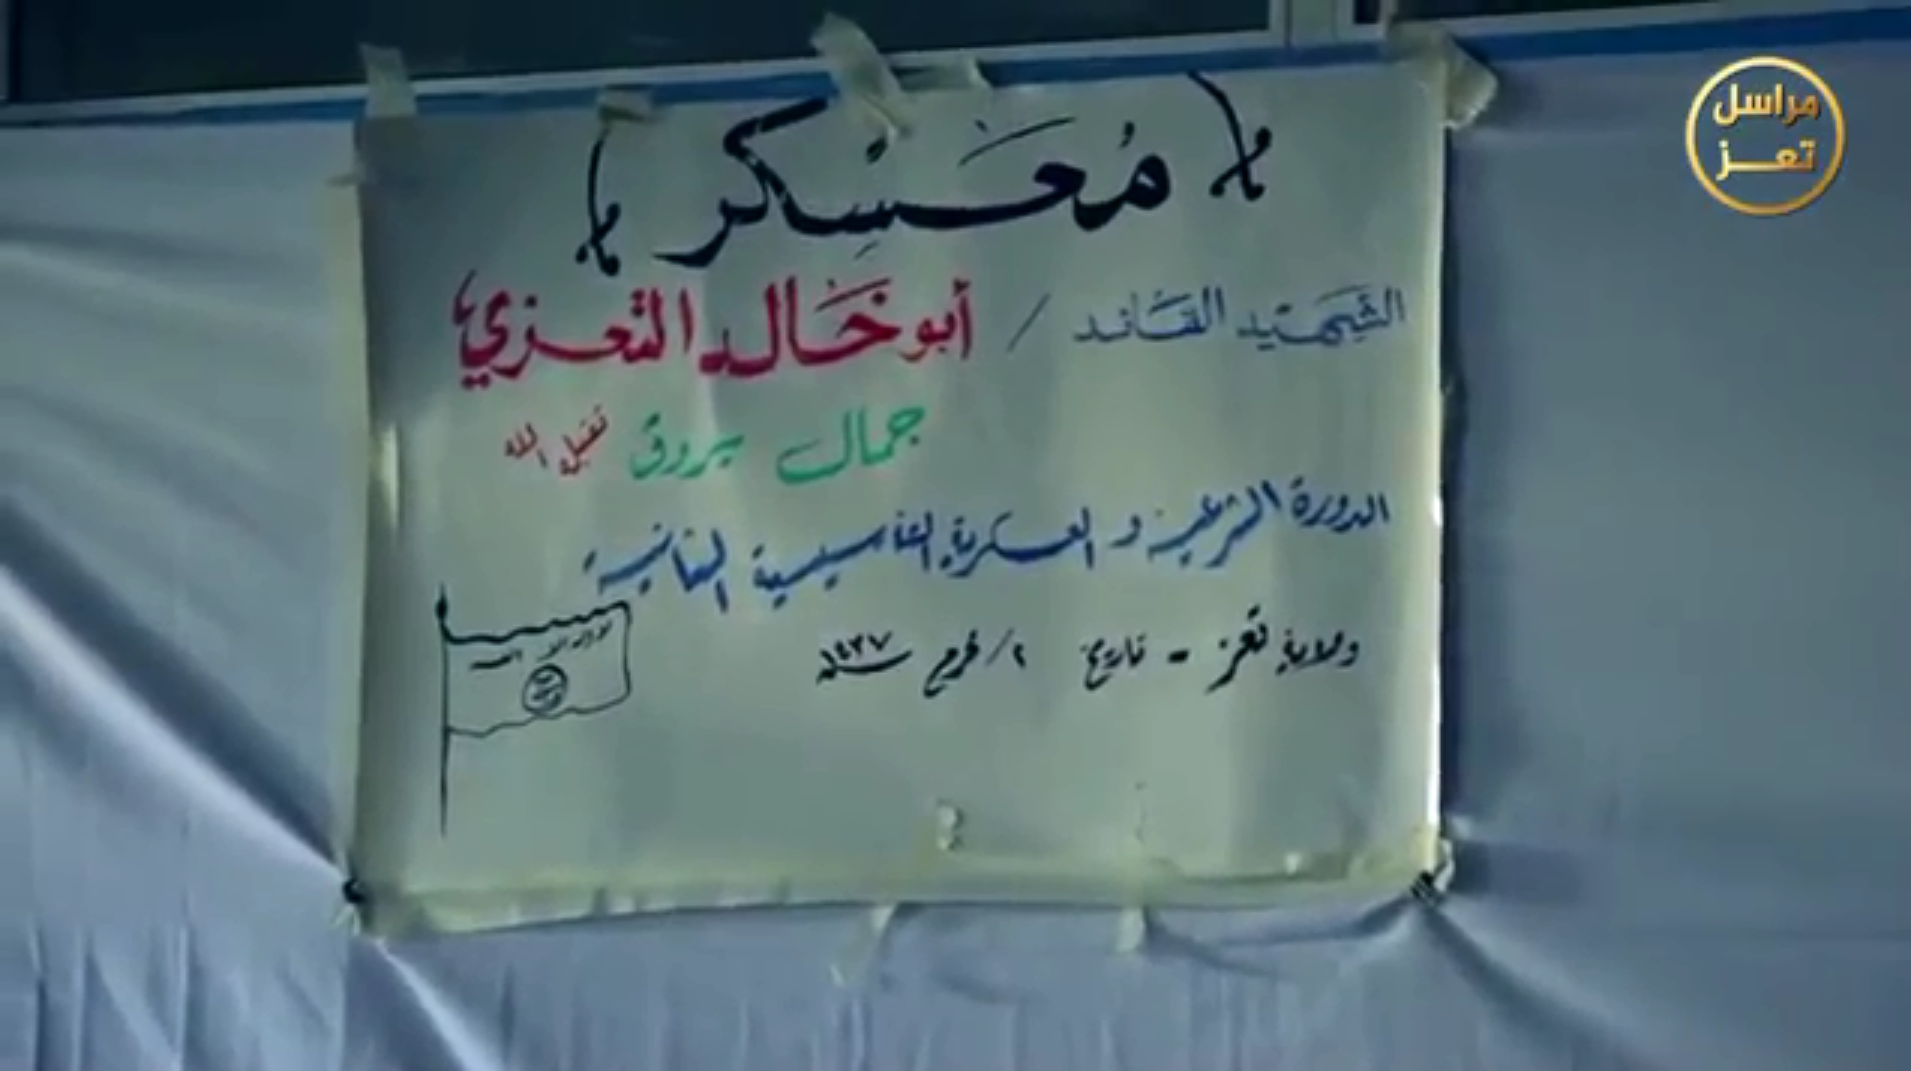 مراسل
تعز
( مُعَسْكر )
الشهيد القائد / أبو خالد التعزي
جمال بروق تقبله الله
الدورة الشرعية و العسكرية التأسيسية الثانية
ولاية تعز - تاريخ ٢/محرم ١٤٣٧